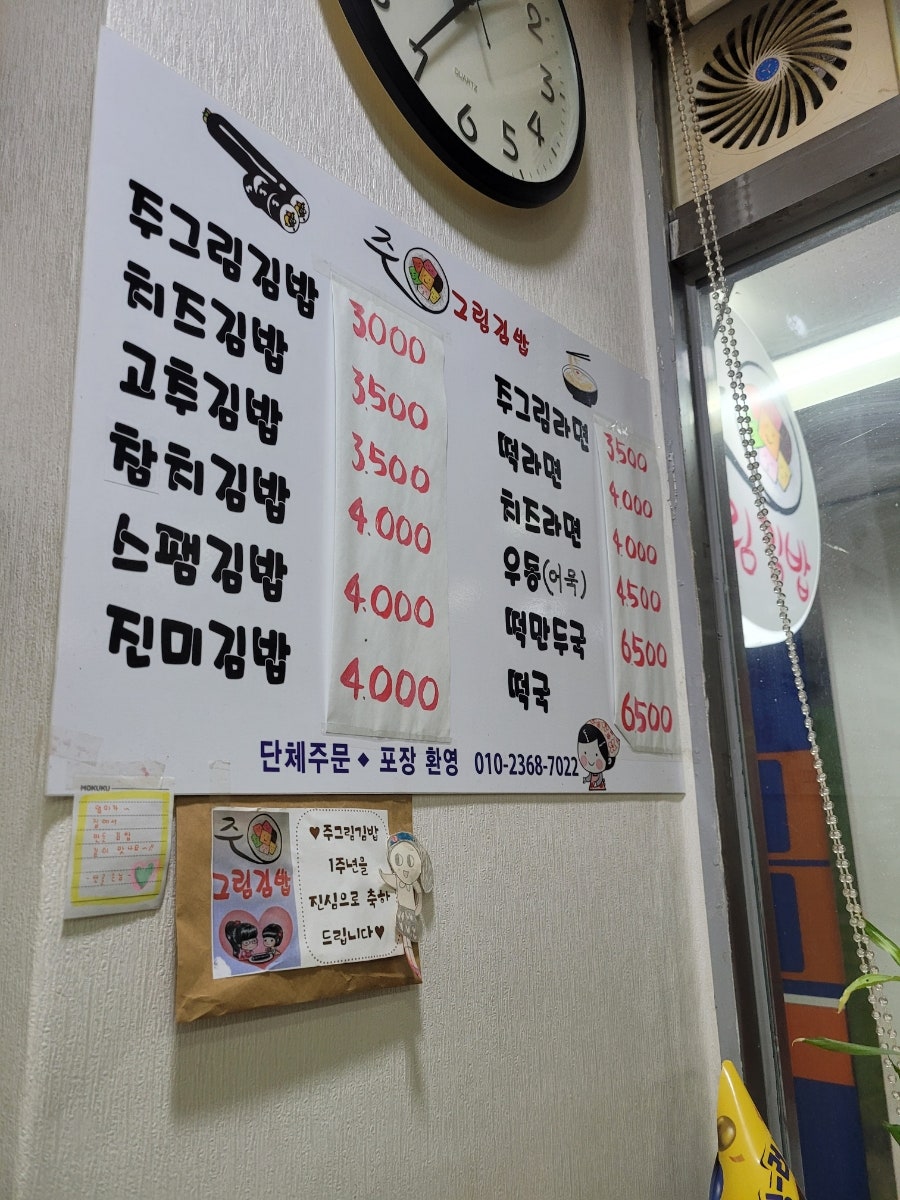 2
3
4
5
6
QUARTZ
주그림김밥
주그림김밥 3.000
치즈김밥 3.500
고추김밥 3.500
참치김밥 4.000
스팸김밥 4.000
진미김밥 4.000
주그림라면 3500
떡라면 4.000
치즈라면 4000
우동(어묵) 4500
떡만두국 6500
떡국 6500
단체주문 ◆ 포장 환영 010-2368-7022
MOKUKU
주
그림김밥
♥주그림김밥
1주년을
진심으로 축하
드립니다♥
림김밥